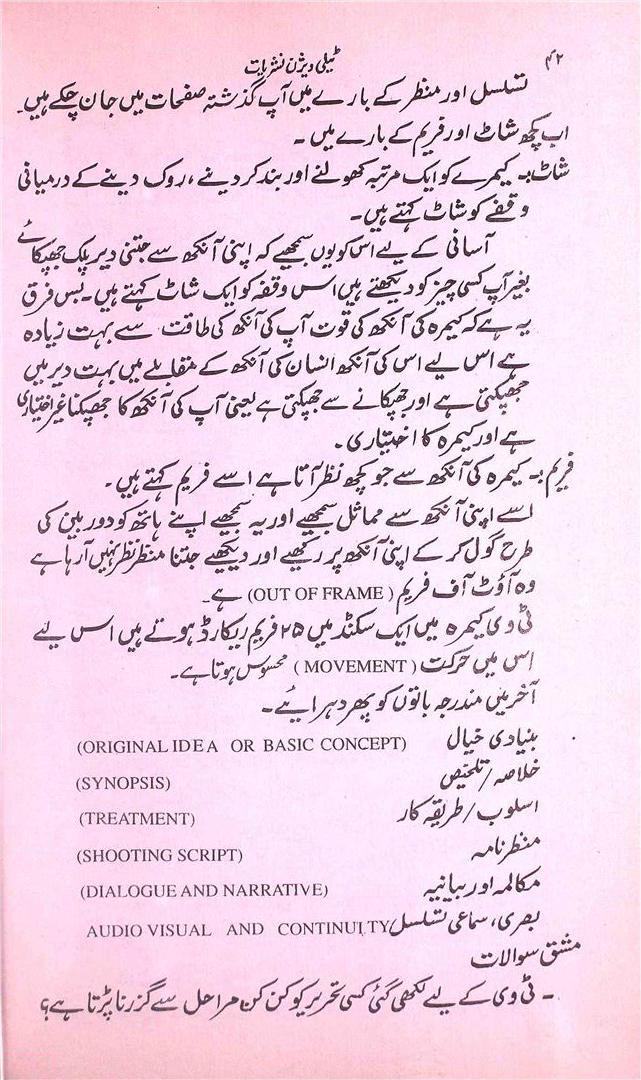 ۴۲
ٹیلی ویژن نشریات
تسلسل اور منظر کے بارے میں آپ گذشتہ صفحات میں جان چکے ہیں۔
اب کچھ شاٹ اور فریم کے بارے میں ۔
شاٹ:۔ کیمرے کو ایک مرتبہ کھولنے اور بند کر دینے ، روک دینے کے درمیانی
وقفے کو شاٹ کہتے ہیں۔
آسانی کے لیے اس کو یوں سمجھیے کہ اپنی آنکھ سے جتنی دیر پلک جھپکائے
بغیر آپ کسی چیز کو دیکھتے ہیں اس وقفہ کو ایک شاٹ کہتے ہیں۔ بس فرق
یہ ہے کہ کیمرہ کی آنکھ کی قوت آپ کی آنکھ کی طاقت سے بہت زیادہ
ہے اس لیے اس کی آنکھ انسان کی آنکھ کے مقابلے میں بہت دیر میں
جھپکتی ہے اور جھپکانے سے جھپکتی ہے یعنی آپ کی آنکھ کا جھپکنا غیر اختیاری
ہے اور کیمرہ کا اختیاری۔
فریم:۔ کیمرہ کی آنکھ سے جو کچھ نظر آتا ہے اسے فریم کہتے ہیں۔
اسے اپنی آنکھ سے مماثل سمجھیے اور یہ سمجھیے اپنے ہاتھ کو دوربین کی
طرح گول کر کے اپنی آنکھ پر رکھیے اور دیکھیے جتنا منظر نظر نہیں آرہا ہے
وہ آؤٹ آف فریم (OUT OF FRAME) ہے۔
ٹی وی کیمرہ میں ایک سکنڈ میں ۲۵ فریم ریکارڈ ہوتے ہیں اس لیے
اس میں حرکت (MOVEMENT) محسوس ہوتا ہے۔
آخر میں مندرجہ باتوں کو پھر دہرائیے۔
بنیادی خیال (ORIGINAL IDEA OR BASIC CONCEPT)
خلاصہ/تلخیص (SYNOPSIS)
اسلوب/طریقہ کار (TREATMENT)
منظرنامہ (SHOOTING SCRIPT)
مکالمہ اور بیانیہ (DIALOGUE AND NARRATIVE)
بصری، سماعی تسلسل AUDIO VISUAL AND CONTINUITY
مشق سوالات
۔ ٹی وی کے لیے لکھی گئی کسی تحریر کو کن کن مراحل سے گزرنا پڑتا ہے؟